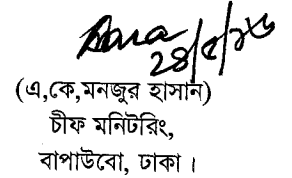 ২৪/৫/১৬
(এ,কে,মনজুর হাসান)
চীফ মনিটরিং,
বাপাউবো, ঢাকা।